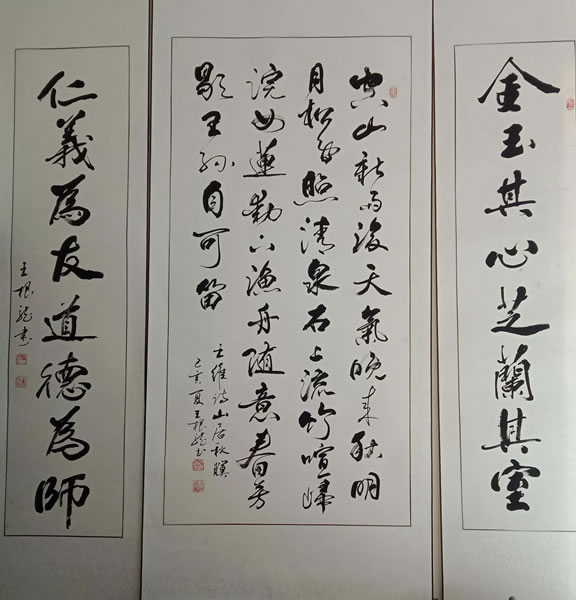 金玉其心芝蘭其室
空山新雨後天氣晚来秋明
月松間照清泉石上流竹喧歸
浣女蓮動下漁舟隨意春芳
歇王孫自可留
王維詩山居秋暝
己亥夏王根龍书
仁義為友道德為師
王根龍书